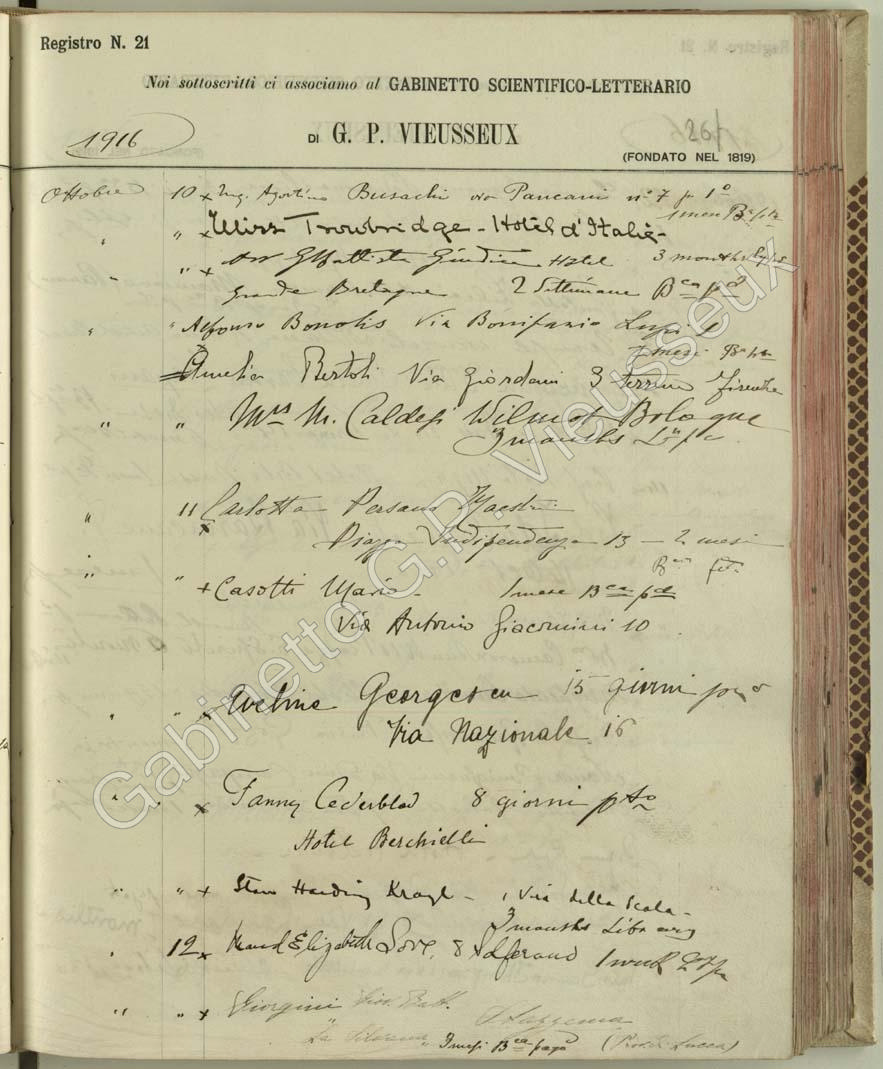 Registro N. 21
Noi sottoscritti ci associamo al GABINETTO SCIENTIFICO-LETTERARIO
1916
DI G. P. VIEUSSEUX
261
(FONDATO NEL 1819)
Ottobre 10 x Ing. Agostino Busachi via Pancani n° 7 p 1°
1 mese Bca pta
" " x Miss Trowbridge - Hotel d'Italie -
" " x GBattista Giudice Hotel 3 months
Grande Bretagne 2 Settimane Bca pta
" " Alfonso Bonolis Via Bonifazio Lupi
mesi Bca pta
Amelia Bertoli Via Giordani 3 terreno Firenze
" " Mrs M. Caldesi Wilmot Bologne
3 months
" 11 x Carlotta Persano Maestrini
Piazza Indipendenza 13 - 2 mesi
" " + Casotti Mario - 1 mese Bca pta
Via Antonio Giacomini 10
" " x Eveline Georgescu 15 giorni
Via Nazionale 16
" " x Fanny Cederblad 8 giorni pto
Hotel Berchielli
" " + Stan Harding Krayl - 1 Via della Scala -
3 months Library
" 12 x Maud Elizabeth Love, 8 Solferino 1 week
" " x Giorgini Giov. Batt.
3 mesi Bca pag° (Prov. di Lucca)
Gabinetto G.P. Vieusseux